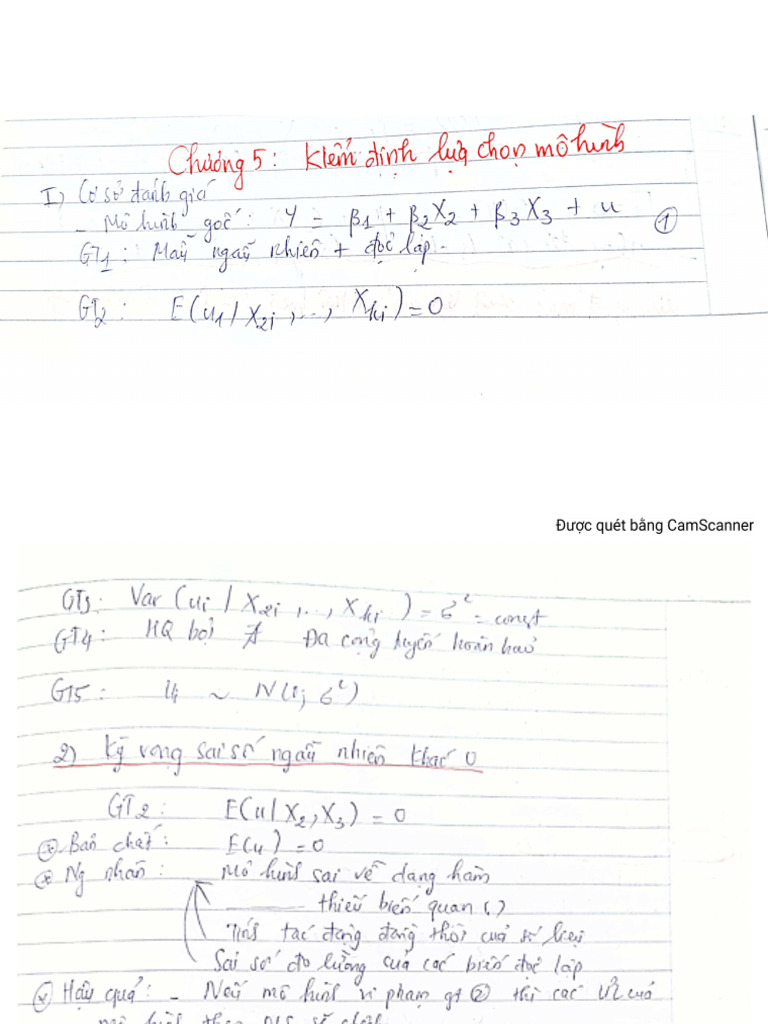 Chương 5: Kiểm định lựa chọn mô hình
I) Cơ sở đánh giá
- Mô hình gốc: Y = β1 + β2X2 + β3X3 + u (1)
GT1: Mẫu ngẫu nhiên + độc lập.
GT2: E(u1/X2i,..., Xki)=0
Được quét bằng CamScanner
GT3: Var(ui/X2i,..., Xki) = σ² = const
GT4: HQ bội ∄ Đa cộng tuyến hoàn hảo
GT5: U ~ N(0; σ²)
2) Kỳ vọng sai số ngẫu nhiên khác 0
GT2: E(u/X2,X3) = 0
(*) Bản chất: E(u)=0
(*) Ng nhân: Mô hình sai về dạng hàm
thiếu biến quan ( )
Tính tác động đồng thời của số liệu
Sai số đo lường của các biến độc lập
(*) Hậu quả: - Nếu mô hình vi phạm gt (2) thì các ƯL của